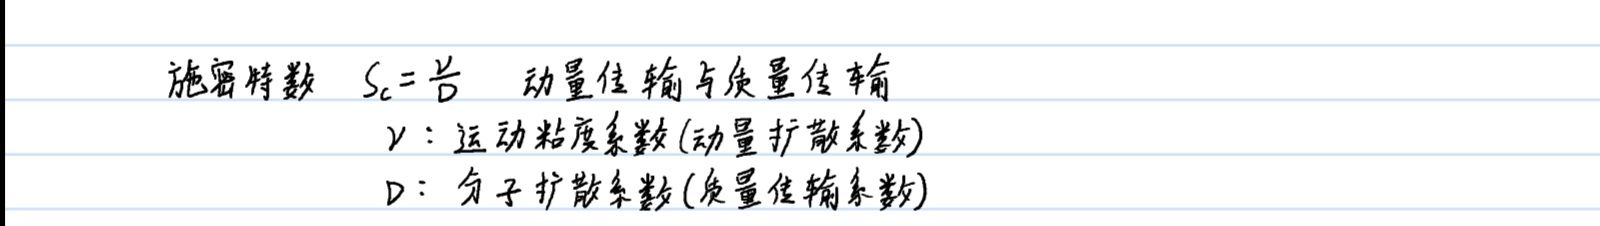 施密特数 Sc = ν/D 动量传输与质量传输
ν：运动粘度系数(动量扩散系数)
D：分子扩散系数(质量传输系数)